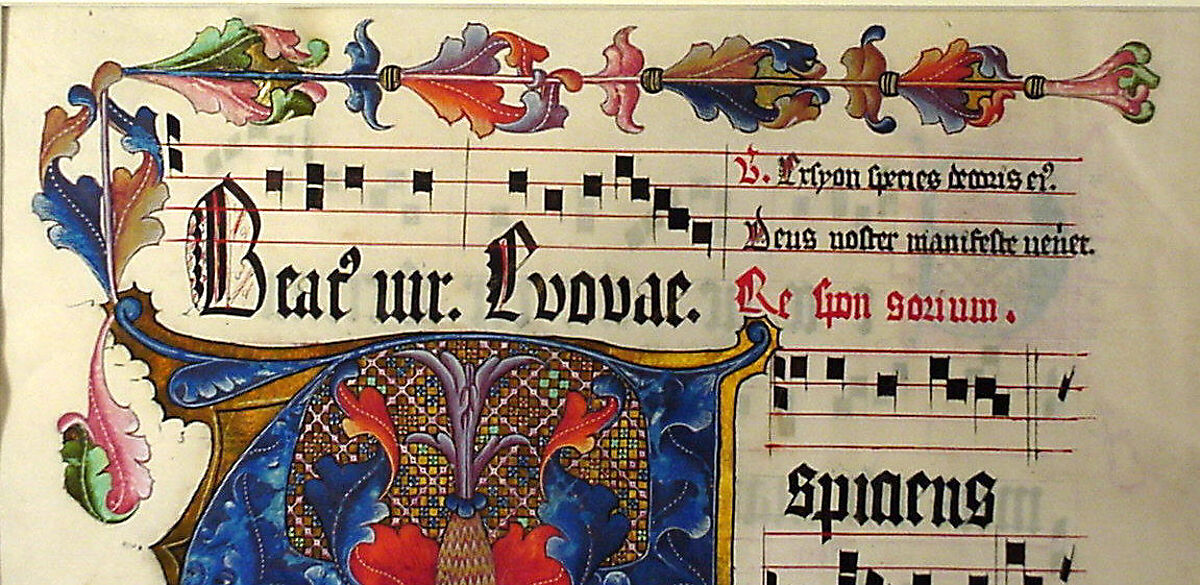 Beatꝰ uir. Euouae.
℣. Ex syon species decoris eiꝰ.
Deus noster manifeste ueniet.
Re spon sorium.
spiciens